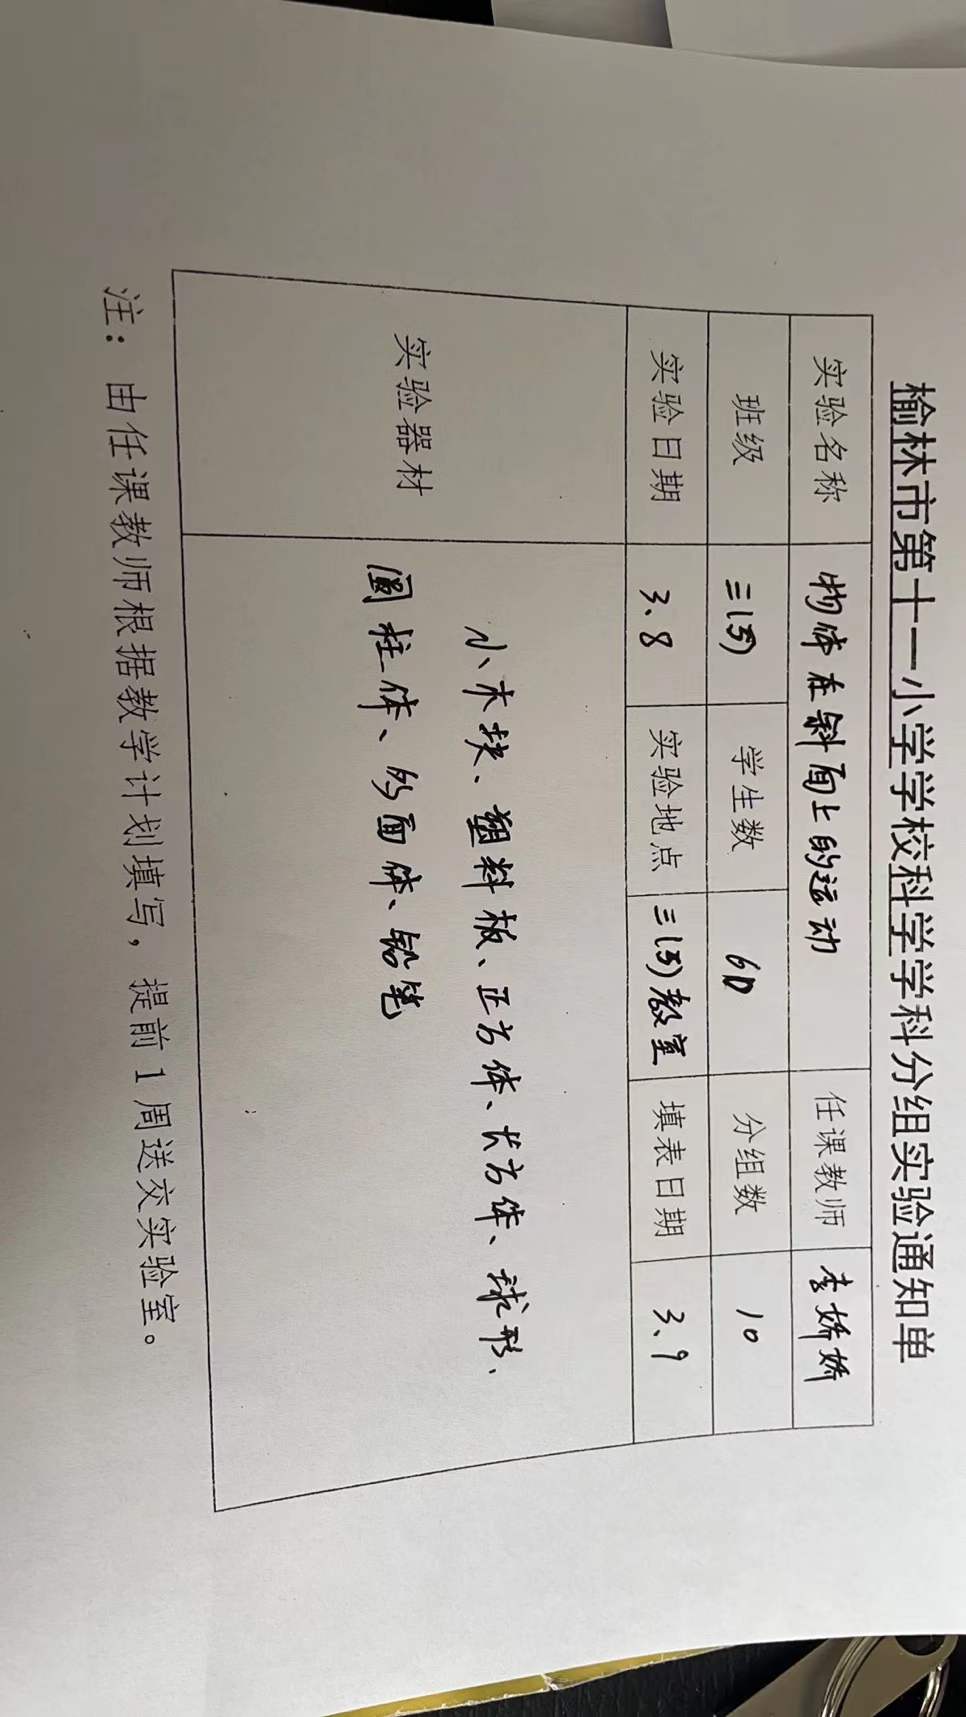 榆林市第十一小学学校科学学科分组实验通知单
实验名称 物体在斜面上的运动 任课教师 李娇娇
班级 三(5) 学生数 60 分组数 10
实验日期 3.8 实验地点 三(5)教室 填表日期 3.9
实验器材
小木块、塑料板、正方体、长方体、球形、
圆柱体、多面体、铅笔
注：由任课教师根据教学计划填写，提前1周送交实验室。